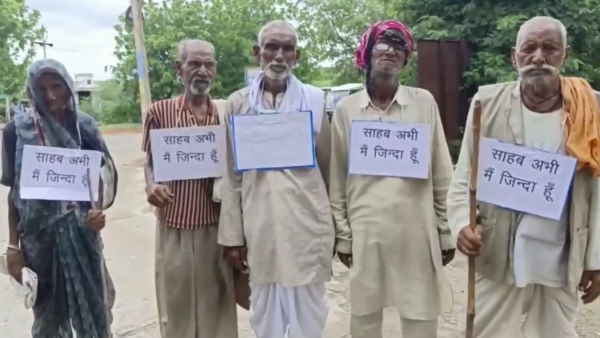 साहब अभी
मैं जिन्दा हूँ
साहब अभी
मैं जिन्दा हूँ
साहब अभी
मैं जिन्दा हूँ
साहब अभी
मैं जिन्दा हूँ